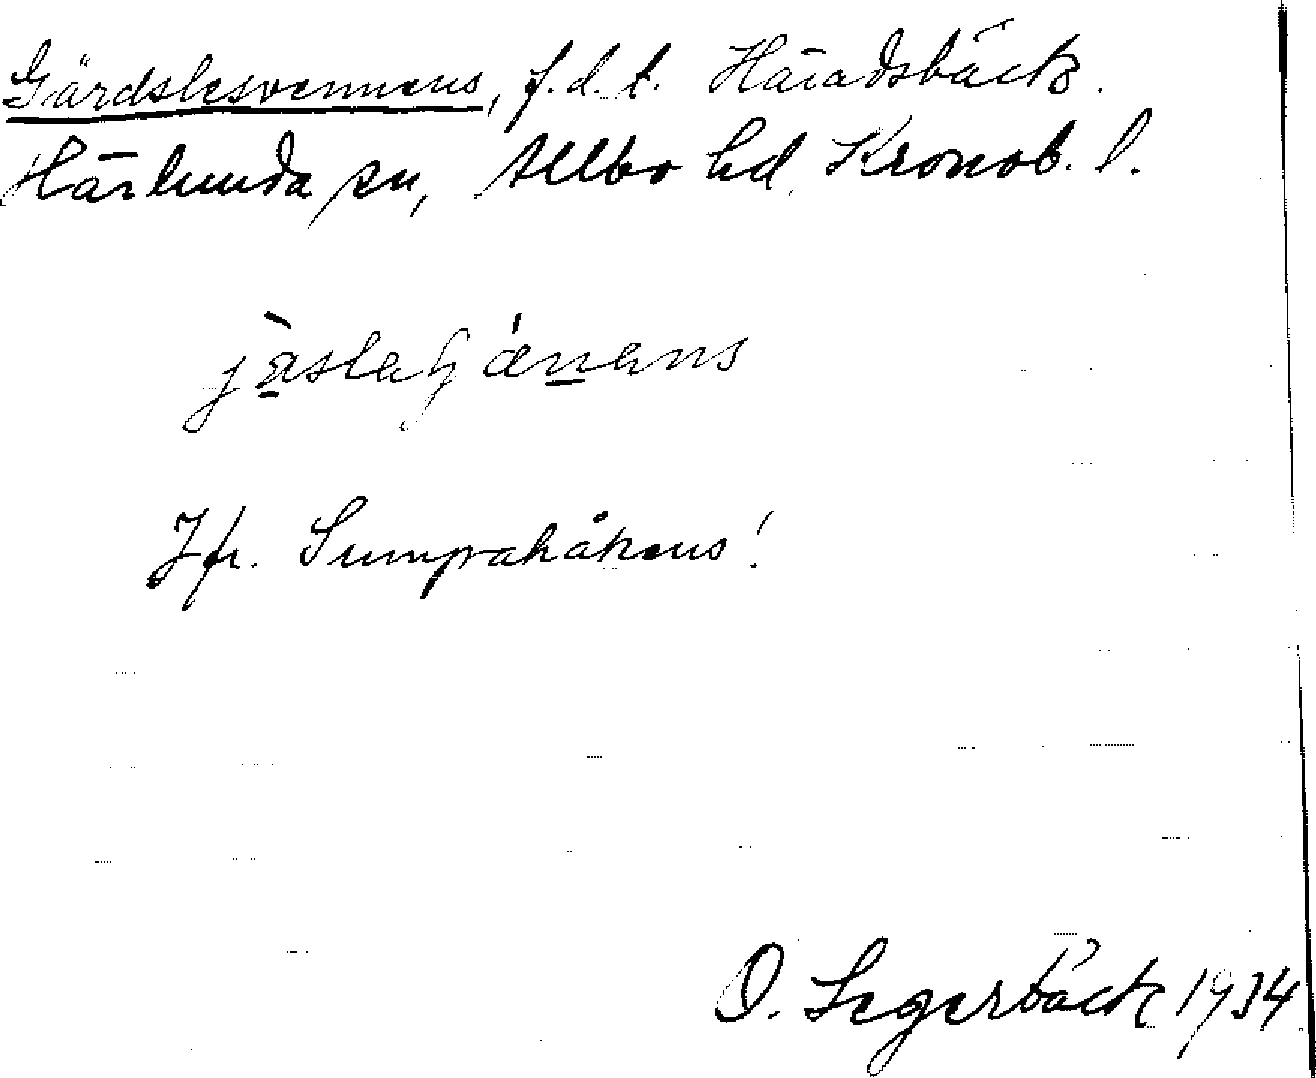 Gärdslesvennens, f.d.t. Häradsbäck.
Härlunda sn, Allbo hd. Kronob. l.
Jfr. Sumpahåkens!
O. Segerbäck 1934